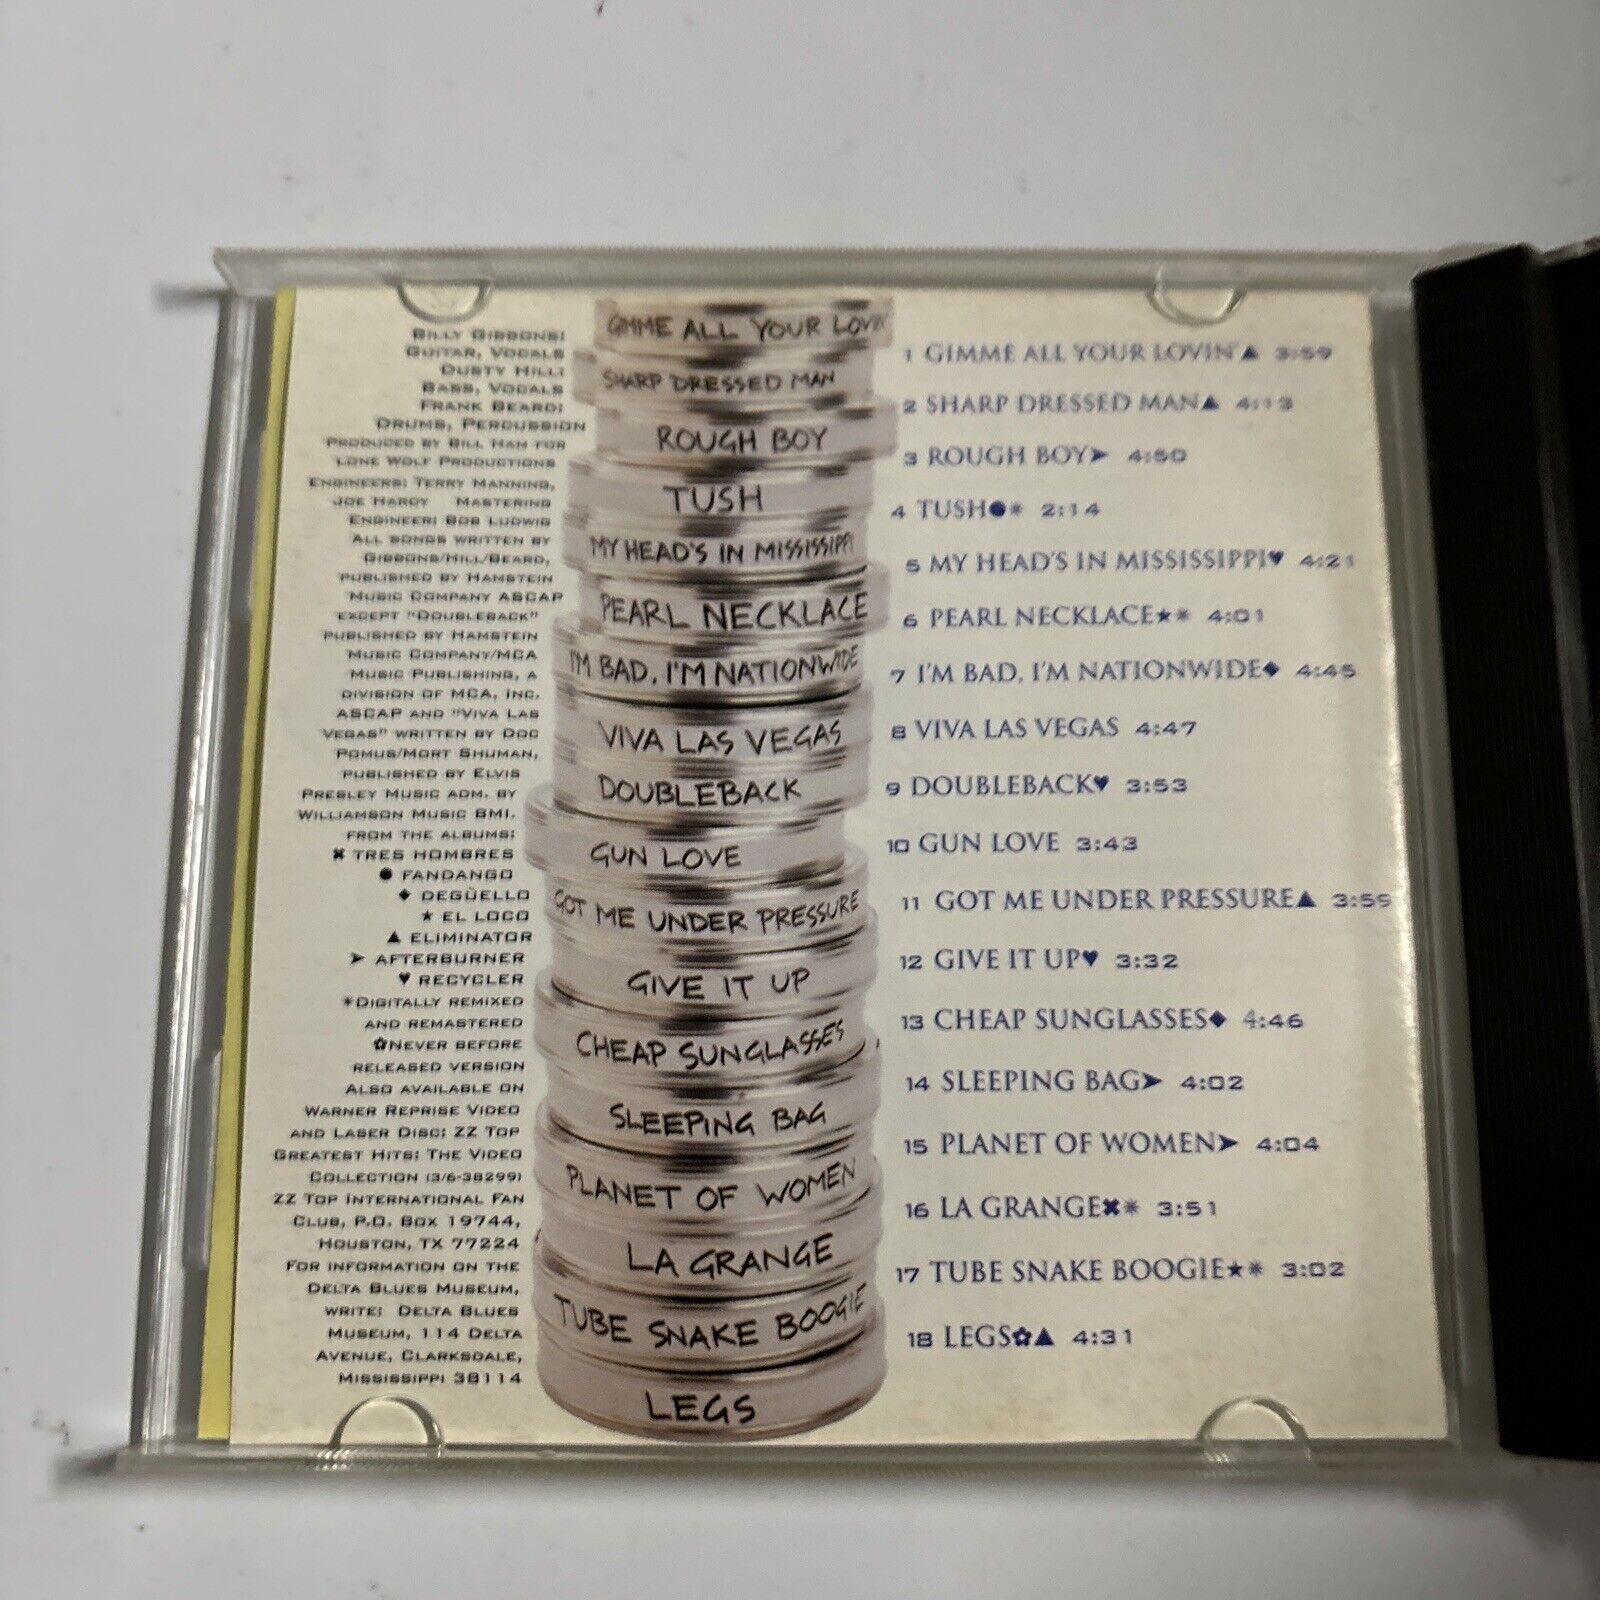 BILLY GIBBONS:
GUITAR, VOCALS
DUSTY HILL:
BASS, VOCALS
FRANK BEARD:
DRUMS, PERCUSSION
PRODUCED BY BILL HAM FOR
LONE WOLF PRODUCTIONS
ENGINEERS: TERRY MANNING,
JOE HARDY MASTERING
ENGINEER: BOB LUDWIG
ALL SONGS WRITTEN BY
GIBBONS/HILL/BEARD,
PUBLISHED BY HAMSTEIN
MUSIC COMPANY ASCAP
EXCEPT "DOUBLEBACK"
PUBLISHED BY HAMSTEIN
MUSIC COMPANY/MCA
MUSIC PUBLISHING, A
DIVISION OF MCA, INC.
ASCAP AND "VIVA LAS
VEGAS" WRITTEN BY DOC
POMUS/MORT SHUMAN,
PUBLISHED BY ELVIS
PRESLEY MUSIC ADM. BY
WILLIAMSON MUSIC BMI.
FROM THE ALBUMS:
✖ TRES HOMBRES
● FANDANGO
◆ DEGÜELLO
★ EL LOCO
▲ ELIMINATOR
➤ AFTERBURNER
♥ RECYCLER
✳DIGITALLY REMIXED
AND REMASTERED
✿NEVER BEFORE
RELEASED VERSION
ALSO AVAILABLE ON
WARNER REPRISE VIDEO
AND LASER DISC: ZZ TOP
GREATEST HITS: THE VIDEO
COLLECTION (3/6-38299)
ZZ TOP INTERNATIONAL FAN
CLUB, P.O. BOX 19744,
HOUSTON, TX 77224
FOR INFORMATION ON THE
DELTA BLUES MUSEUM,
WRITE: DELTA BLUES
MUSEUM, 114 DELTA
AVENUE, CLARKSDALE,
MISSISSIPPI 38114
GIMME ALL YOUR LOVIN'
SHARP DRESSED MAN
ROUGH BOY
TUSH
MY HEAD'S IN MISSISSIPPI
PEARL NECKLACE
I'M BAD, I'M NATIONWIDE
VIVA LAS VEGAS
DOUBLEBACK
GUN LOVE
GOT ME UNDER PRESSURE
GIVE IT UP
CHEAP SUNGLASSES
SLEEPING BAG
PLANET OF WOMEN
LA GRANGE
TUBE SNAKE BOOGIE
LEGS
1 GIMME ALL YOUR LOVIN'▲ 3:59
2 SHARP DRESSED MAN▲ 4:13
3 ROUGH BOY➤ 4:50
4 TUSH●✳ 2:14
5 MY HEAD'S IN MISSISSIPPI♥ 4:21
6 PEARL NECKLACE★✳ 4:01
7 I'M BAD, I'M NATIONWIDE◆ 4:45
8 VIVA LAS VEGAS 4:47
9 DOUBLEBACK♥ 3:53
10 GUN LOVE 3:43
11 GOT ME UNDER PRESSURE▲ 3:59
12 GIVE IT UP♥ 3:32
13 CHEAP SUNGLASSES◆ 4:46
14 SLEEPING BAG➤ 4:02
15 PLANET OF WOMEN➤ 4:04
16 LA GRANGE✖✳ 3:51
17 TUBE SNAKE BOOGIE★✳ 3:02
18 LEGS✿▲ 4:31